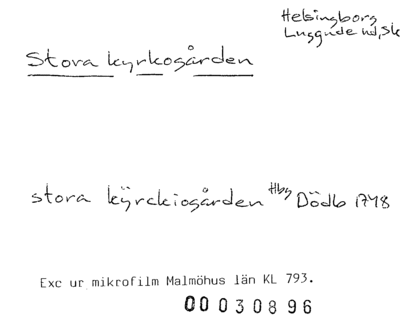 Helsingborg
Luggude hd, Sk
Stora kyrkogården
stora kÿrckiogården Hbg Dödb 1748
Exc ur mikrofilm Malmöhus län KL 793.
00 030896